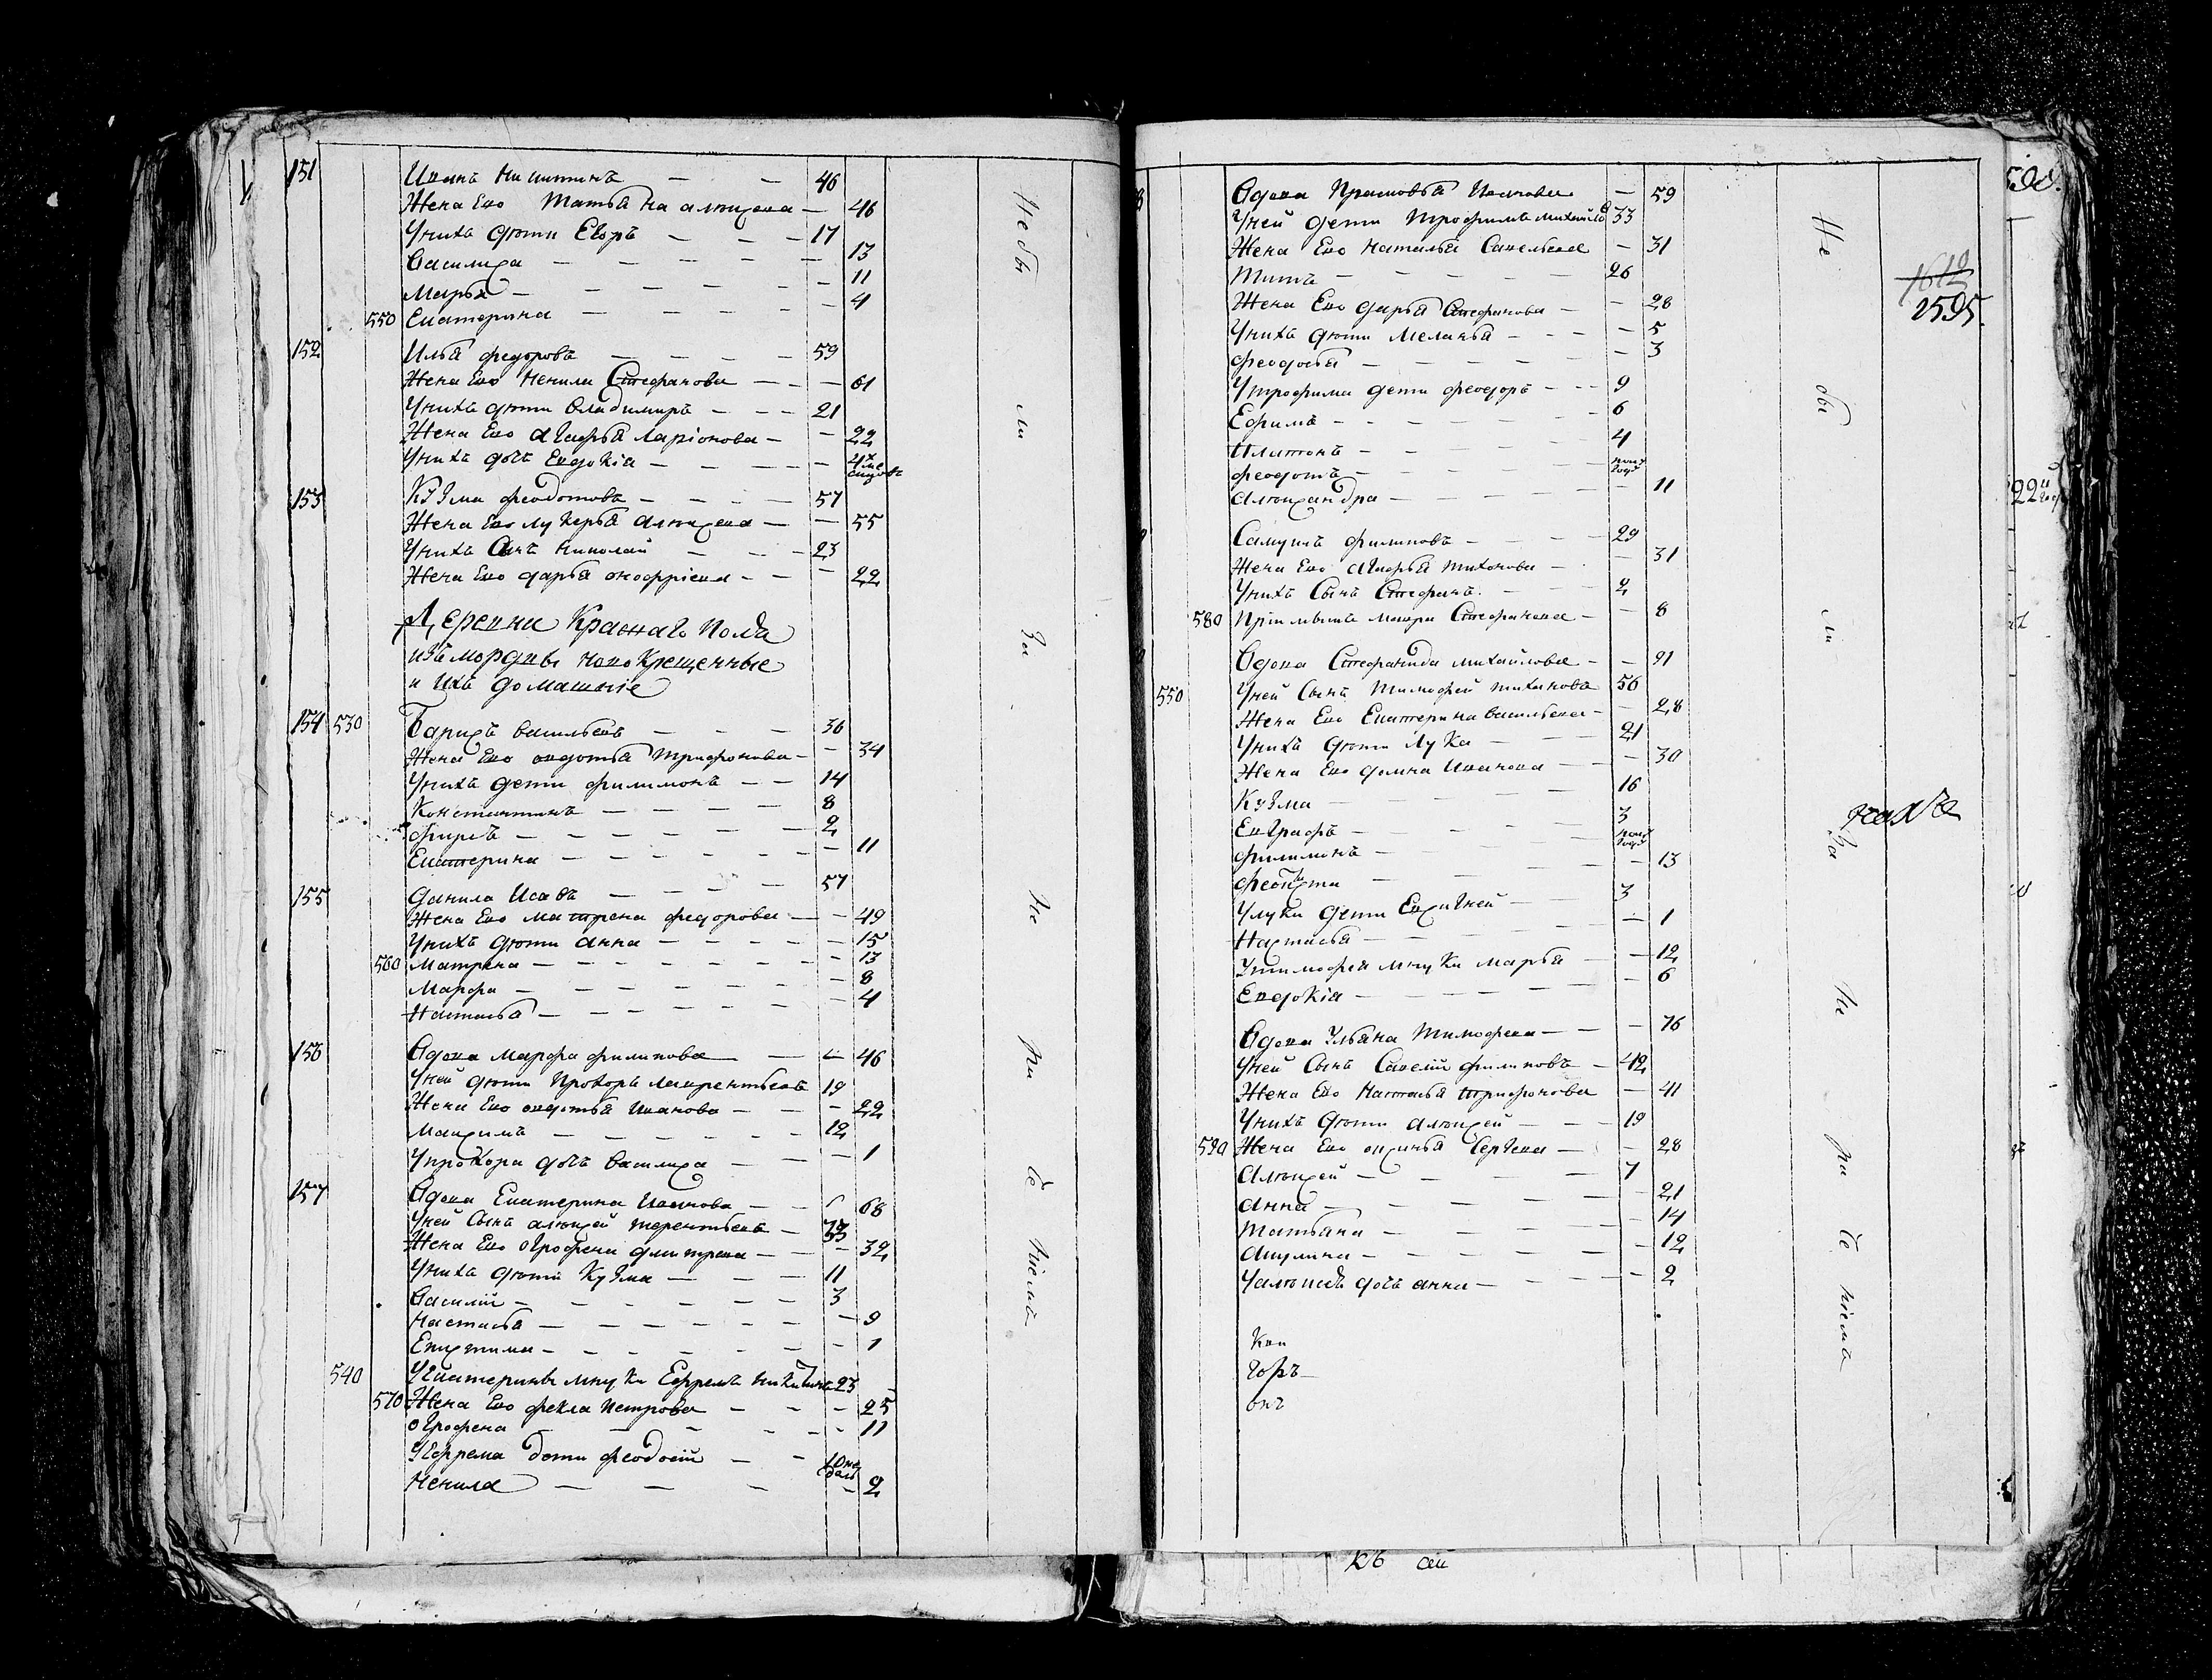 151 Иванъ Никитинъ — — 46
Жена Ево Татья на алеѯеева — 46
Унихъ дѣти Егоръ — — — 17
Василиса — — — — — 13
Марья — — — — — 11
550 Екатерина — — — — 4
152 Илья федоровъ — — — — 59
Жена Ево Ненила Стефанова — — — 61
Унихъ дѣти Владимиръ — — — 21
Жена Ево агафья ларіонова — — 22
Унихъ дочь Евдокіа — — — — —
153 Кузма феодотовъ — — — — 57
Жена Ево лукерья алеѯеева — — 55
Унихъ Сынъ николай — — — 23
Жена Ево дарья онофріева — — — 22
Деревни Краснаго Пола
изъ мордвы новокрещенные
и ихъ домашніе
154 530 васильевъ — — — 36
Жена Ево овдотья трифонова — — 34
Унихъ дети филимонъ — — 14
Константинъ — — — — 8
фирсъ — — — — — — 2
Екатерина — — — — — — 11
155 данила Исаевъ — — — — 57
Жена Ево матрена федорова — — 49
Унихъ дѣти анна — — — — — 15
560 Матрена — — — — — — — 13
Марфа — — — — — — 8
Настасья — — — — — — 4
156 Вдова марфа филипова — — 46
Уней дѣти Прохоръ лаврентьевъ 19
Жена Ево овдотья Иванова — — — 22
Маѯимъ — — — — — — 12
Упрохора дочь василиса — — — 1
157 Вдова Екатерина Иванова — — 68
Уней Сынъ алеѯей терентьевъ — 33
Жена Ево огрофена дмитрева — — — 32
Унихъ дѣти Кузма — — — 11
Василій — — — — — — 3
Настасья — — — — — — — 9
— — — — — — — 1
540 Уекатерины внуки Ефремъ никитинъ 23
570 Жена Ево фекла петрова — — — 25
огрофена — — — — — 11
Уефрема дети феодосій — —
Ненила — — — — — 2
Не бы ли За Не ра че ніемъ
Вдова Прасковья Иванова — 59
Уней дети трофимъ михайловъ 33
Жена Ево наталья Савельева — 31
Титъ — — — — — 26
Жена Ево дарья Стефанова — — 28
Унихъ дѣти меланья — — — — 5
феодосья — — — — — — 3
Утрофима дети феодоръ — — — 9
Ефимъ — — — — — — 6
Платонъ — — — — — 4
феодотъ — — — — — полу года
алеѯандра — — — — — — 11
Самуилъ филиповъ — — — — 29
Жена Ево агафья тихонова — — 31
Унихъ Сынъ Стефанъ — — 2
580 мавра Стефанова — — 8
Вдова Стефанида михайлова — — 91
550 Уней Сынъ тимофей тихановъ 56
Жена Ево Екатерина васильева — — 28
Унихъ дѣти лука — — — 21
Жена Ево домна Иванова — — — 30
Кузма — — — — — 16
Евграфъ — — — — — 3
филимонъ — — — — — полу года
— — — — 13
Улуки дети Евсигней — — 3
Настасья — — — — — — 1
Утимофея внуки марья — — 12
Евдокіа — — — — — — 6
Вдова Ульяна тимофеева — — — 76
Уней Сынъ Савелій филиповъ — 42
Жена Ево Настасья трифонова — 41
Унихъ дѣти алеѯей — — — 19
590 Жена Ево оксинья Сергеева — — 28
алеѯей — — — — — 7
анна — — — — — — 21
Татьяна — — — — — 14
акулина — — — — — — 12
Уалеѯея дочь анна — — — — 2
Не бы ли За Не ра че ніемъ
1610
2595.
590.